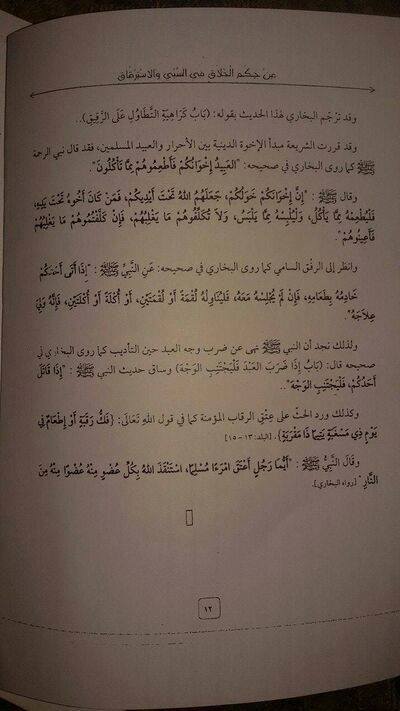 من حكم الخلاق في السبي والاسترقاق
وقد ترجم البخاري لهذا الحديث بقوله: (بَابُ كَرَاهِيَةِ التَّطَاوُلِ عَلَى الرَّقِيقِ)..
وقد قررت الشريعة مبدأ الإخوة الدينية بين الأحرار والعبيد المسلمين، فقد قال نبي الرحمة
ﷺ كما روى البخاري في صحيحه: "الْعَبِيدُ إِخْوَانُكُمْ فَأَطْعِمُوهُمْ مِمَّا تَأْكُلُونَ".
وقال ﷺ : "إِنَّ إِخْوَانَكُمْ خَوَلُكُمْ، جَعَلَهُمُ اللهُ تَحْتَ أَيْدِيكُمْ، فَمَنْ كَانَ أَخُوهُ تَحْتَ يَدِهِ،
فَلْيُطْعِمْهُ مِمَّا يَأْكُلُ، وَلْيُلْبِسْهُ مِمَّا يَلْبَسُ، وَلاَ تُكَلِّفُوهُمْ مَا يَغْلِبُهُمْ، فَإِنْ كَلَّفْتُمُوهُمْ مَا يَغْلِبُهُمْ
فَأَعِينُوهُمْ".
وانظر إلى الرفق السامي كما روى البخاري في صحيحه: عَنِ النَّبِيِّ ﷺ : "إِذَا أَتَى أَحَدَكُمْ
خَادِمُهُ بِطَعَامِهِ، فَإِنْ لَمْ يُجْلِسْهُ مَعَهُ، فَلْيُنَاوِلْهُ لُقْمَةً أَوْ لُقْمَتَيْنِ، أَوْ أُكْلَةً أَوْ أُكْلَتَيْنِ، فَإِنَّهُ وَلِيَ
عِلاَجَهُ".
ولذلك نجد أن النبي ﷺ نهى عن ضرب وجه العبد حين التأديب كما روى البخاري في
صحيحه قال: (بَابُ إِذَا ضَرَبَ العَبْدَ فَلْيَجْتَنِبِ الوَجْهَ) وساق حديث النبي ﷺ : "إِذَا قَاتَلَ
أَحَدُكُمْ، فَلْيَجْتَنِبِ الوَجْهَ"..
وكذلك ورد الحث على عِتْقِ الرقاب المؤمنة كما في قول اللهِ تَعَالَى: {فَكُّ رَقَبَةٍ أَوْ إِطْعَامٌ فِي
يَوْمٍ ذِي مَسْغَبَةٍ يَتِيمًا ذَا مَقْرَبَةٍ}. [البلد: ١٣-١٥]
وقَالَ النَّبِيُّ ﷺ : "أَيُّمَا رَجُلٍ أَعْتَقَ امْرَءًا مُسْلِمًا، اسْتَنْقَذَ اللهُ بِكُلِّ عُضْوٍ مِنْهُ عُضْوًا مِنْهُ مِنَ
النَّارِ" [رواه البخاري].
١٢